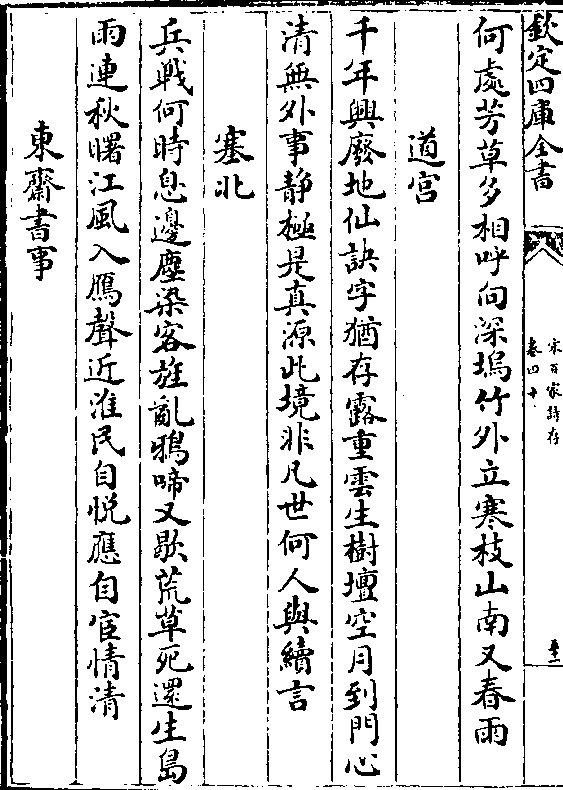 欽定四庫全書
宋百家詩存
卷四十
何處芳草多相呼向深塢竹外立寒枝山南又春雨
道宮
千年興廢地仙訣字猶存露重雲生樹壇空月到門心
清無外事静極是真源此境非凡世何人與續言
塞北
兵戰何時息邊塵染客旌亂鴉啼又歇荒草死還生島
雨連秋曙江風入鴈聲近淮民自悦應自宦情清
東齋書事